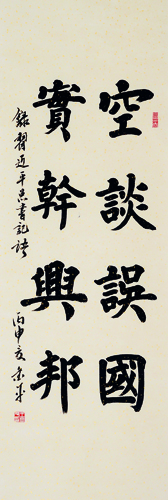 空談誤國
實幹興邦
錄習近平总書記語
丙申夏